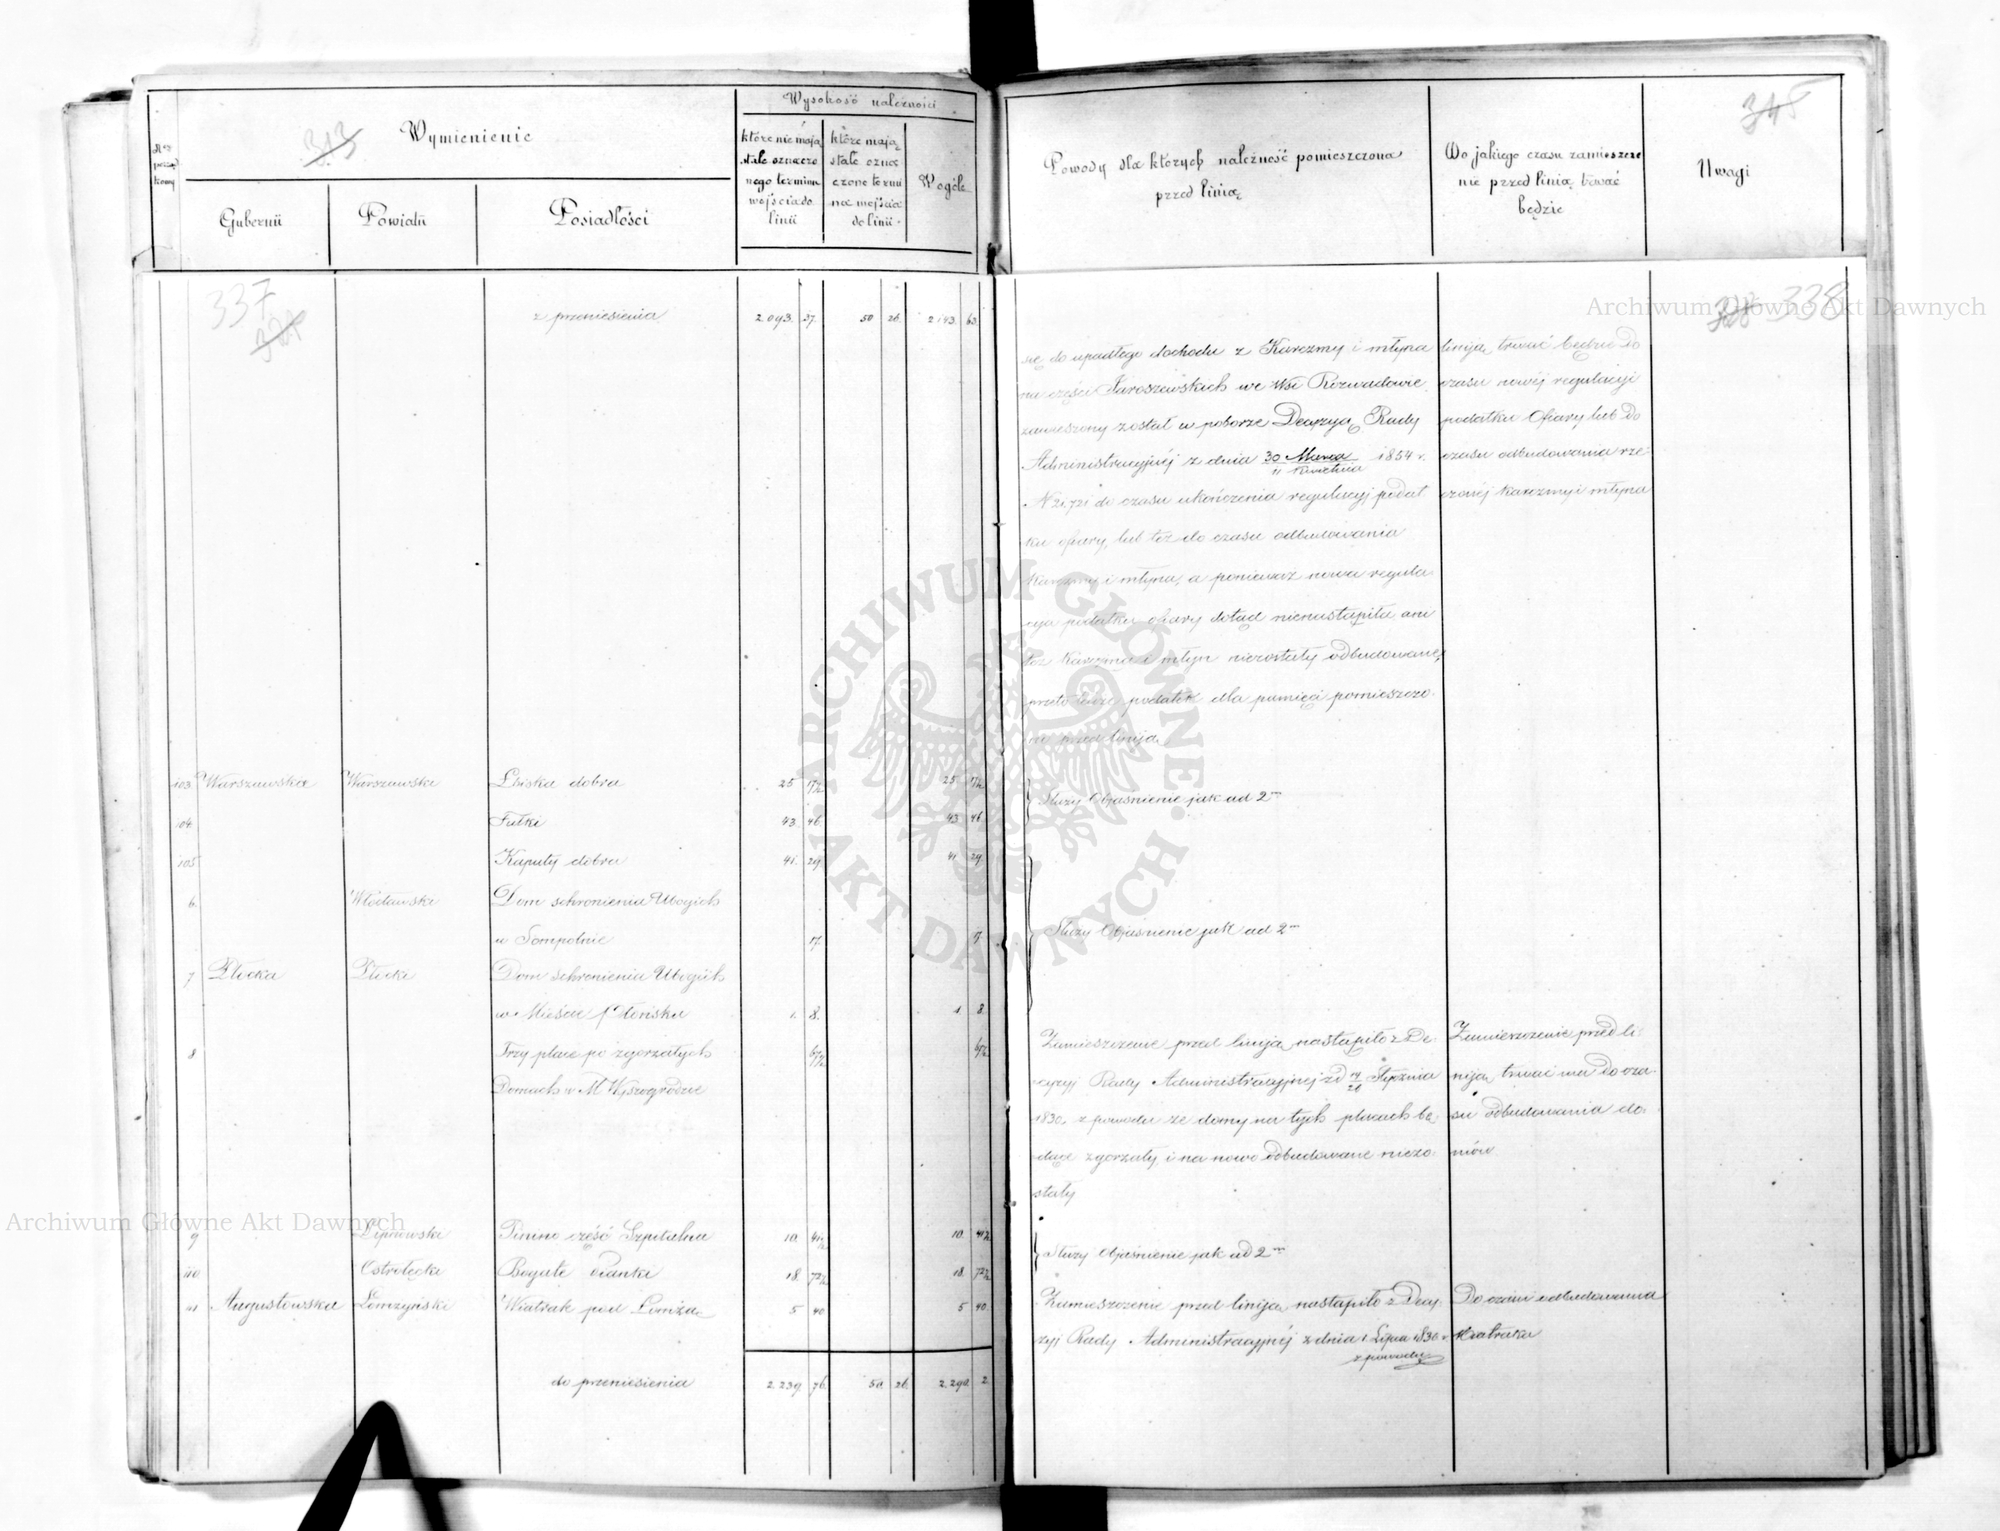 Wymienienie
Wysokość należności
Gubernii
Powiatu
Posiadłości
które nie mają
stale oznaczo
nego terminu
wejścia do
linii
które mają
stale ozna
czone termi
na wejścia
do linii
Wogóle
Powody dla których należność pomieszczona
przed linią
Do jakiego czasu zamieszcze
nie przed linią trwać
będzie
Uwagi
313
315
337
338
z przeniesienia 2 093. 37. 50 26. 2 143. 63.
się do upadłego dochodu z Karczmy i młyna
na części Jaroszewskich we Wsi Rozwadowie
zawieszony został w poborze Decyzyą Rady
Administracyjnéj z dnia 30 Marca / 11 Kwietnia 1854 r.
N 21,721 do czasu ukończenia regulacyi podat
ku ofiary, lub téż do czasu odbudowania
Karczmy i młyna, a ponieważ nowa regula
cya podatku ofiary dotąd nienastąpiła ani
też Karczma i młyn niezostały odbudowane,
przeto tenże podatek dla pamięci pomieszczo
ny przed liniją
liniją trwać będzie do
czasu nowéj regulacyi
podatku Ofiary lub do
czasu odbudowania rze
czonéj Karczmy i młyna
103. Warszawska Warszawski Lhiska dobra 25 17½ 25 17½
104. Fułki 43. 46. 43 46.
Służy Objaśnienie jak ad 2
105 Kaputy dobra 41. 29 41 29
6. Włocławski Dom schronienia Ubogich
w Sompolnie 17.
Służy Objaśnienie jak ad 2
7 Płocka Płocki Dom schronienia Ubogich
w Mieście Płońsku 1. 8. 1 8.
8 Trzy place po zgorzałych 6½ 6½
Domach w M Wyszogrodzie
Zamieszczenie przed liniją nastąpiło z De
cyzyi Rady Administracyjnej z d Stycznia
1830. z powodu że domy na tych placach bę
dące zgorzały, i na nowo odbudowane niezo
stały
Zamieszczenie przed li
niją trwać ma do cza
su odbudowania do
mów
9 Lipnowski Pinino część Szpitalna 10. 41½ 10. 41½
110 Ostrołęcki Bogate 18. 72½ 18. 72½
Służy Objaśnienie jak ad 2
11 Augustowska Łomżyński Wiatrak pod Łomżą 5 40 5 40.
Zamieszczenie przed liniją nastąpiło z Decy
zyi Rady Administracyjnéj z dnia 1 Lipca 1830 r.
z powodu
Do czasu odbudowania
Wiatraka
do przeniesienia 2 239. 76. 50 26. 2.290 2
Archiwum Główne Akt Dawnych
Archiwum Główne Akt Dawnych
ARCHIWUM GŁÓWNE AKT DAWNYCH